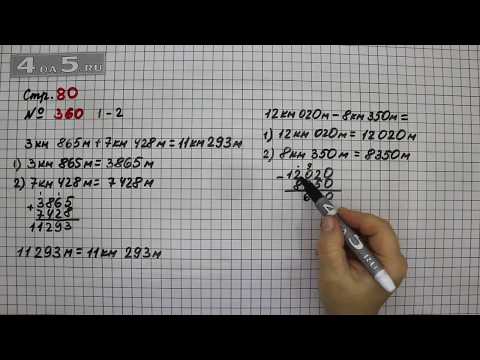 4 ДА 5.RU
Стр. 80
№ 360 1-2
3 км 865 м + 7 км 428 м = 11 км 293 м
1) 3 км 865 м = 3865 м
2) 7 км 428 м = 7428 м
+ 3865
7428
11293
11293 м = 11 км 293 м
12 км 020 м - 8 км 350 м =
1) 12 км 020 м = 12020 м
2) 8 км 350 м = 8350 м
- 12020